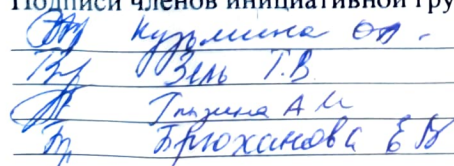 Подписи членов инициативной гру
Кузьмина О.А.
Зель Т.В
Глызина А М
Брюханова Е В